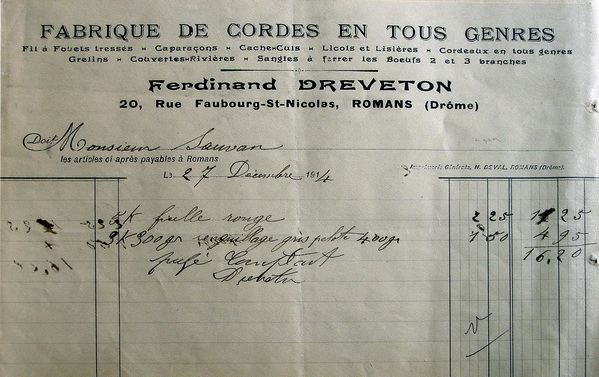 FABRIQUE DE CORDES EN TOUS GENRES
Fil à Fouets tressés × Caparaçons × Cache-Culs × Licols et Lisières × Cordeaux en tous genres
Grelins × Couvertes-Rivières × Sangles à ferrer les Boeufs 2 et 3 branches
Ferdinand DREVETON
20, Rue Faubourg-St-Nicolas, ROMANS (Drôme)
Doit Monsieur Sauvan
les articles ci après payables à Romans
Imprimerie Générale, H. DEVAL, ROMANS (Drôme).
Le 27 Décembre 1914
5K ficelle rouge 2 25 11 25
3K300gr gris pelote 400gr 1 50 4 95
16,20
payé Comptant
Dreveton